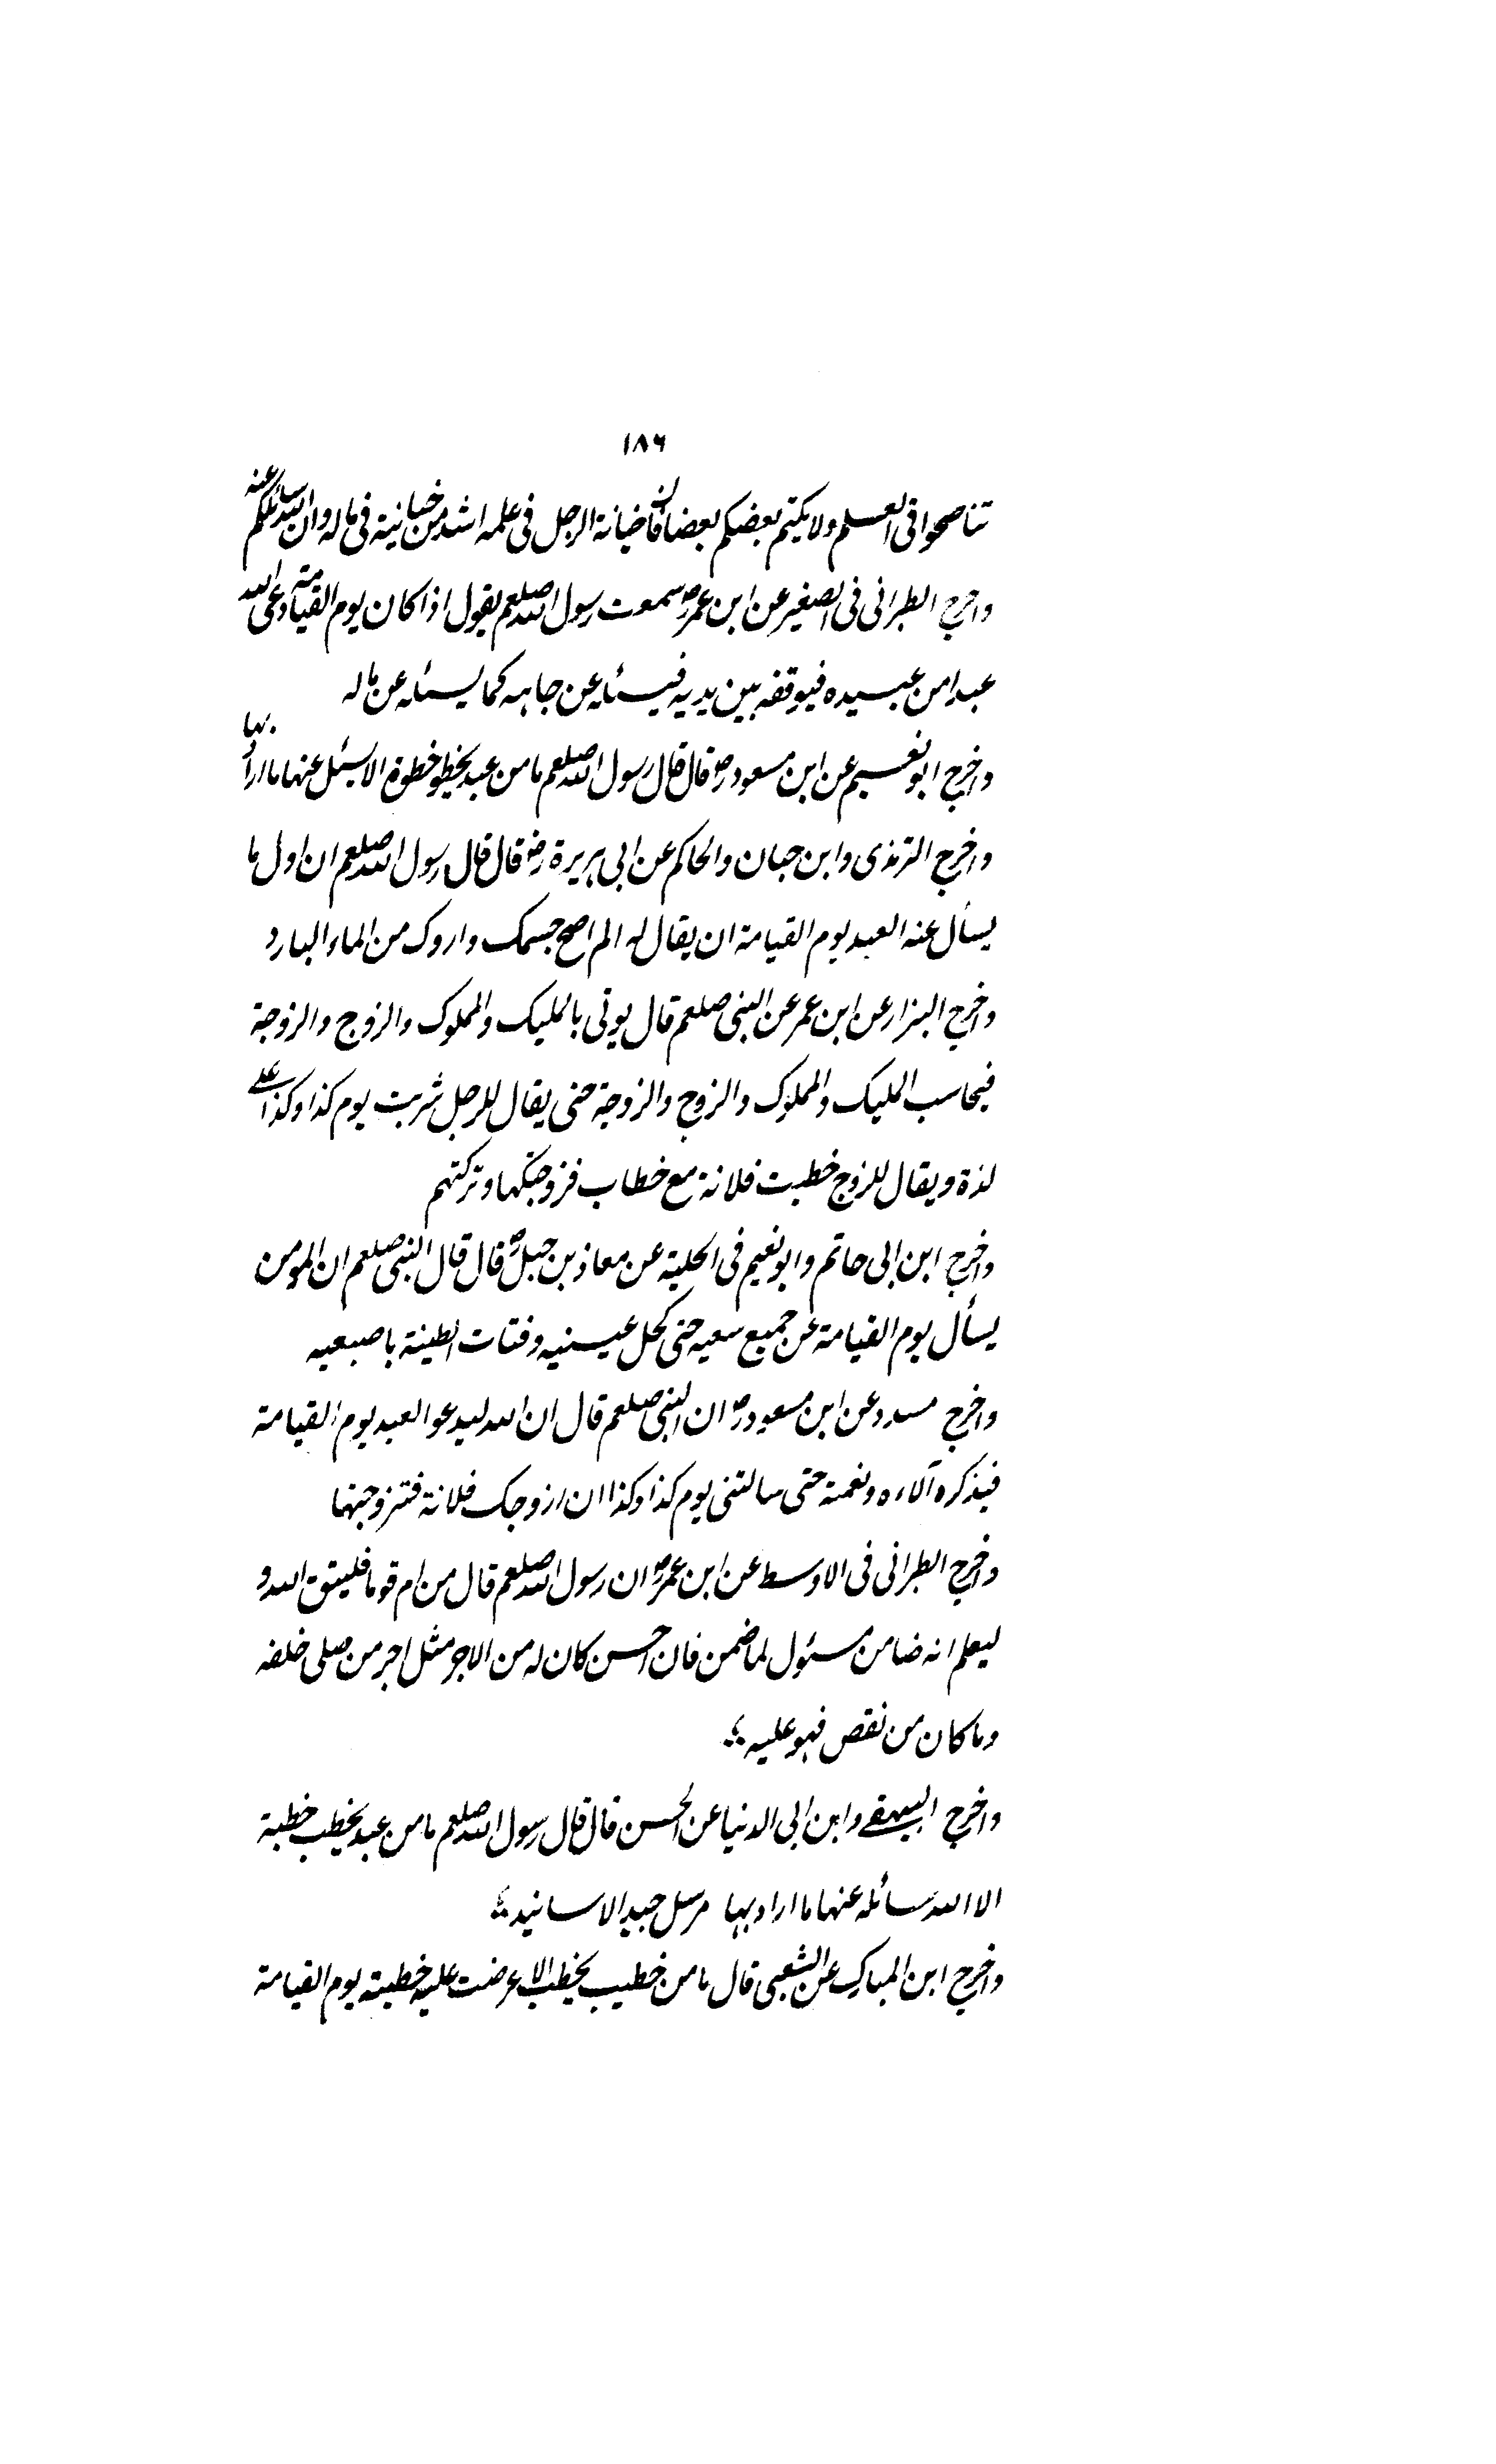 ١٨٦
تناصحوا فی العلم ولا یکتم بعضکم بعضا فان خیانة الرجل فی علمه اشد من خیانیة فی ماله وان الله سائلکم عنه
واخرج الطبرانی فی الصغیر عن ابن عمر رض سمعت رسول الله صلعم یقول اذا کان یوم القیامة دعی الله
عبدا من عبیده فیوقفه بین یدیه فیسئله عن جاهه کما یسئله عن ماله
واخرج ابو نعیم عن ابن مسعود رض قال قال رسول الله صلعم ما من عبد یخطو خطوة الا سئل عنها ما اراد بها
واخرج الترمذی وابن حبان والحاکم عن ابی هریرة رض قال قال رسول الله صلعم ان اول ما
یسأل عنه العبد یوم القیامة ان یقال له الم اصح جسمک واروک من الماء البارد
واخرج البزار عن ابن عمر عن النبی صلعم قال یوتی بالملیک والمملوک والزوج والزوجة
فیحاسب الملیک والمملوک والزوج والزوجة حتی یقال للرجل شربت یوم کذا وکذا علے
لذة ویقال للزوج خطبت فلانة مع خطاب فزوجتکها وترکتهم
واخرج ابن ابی حاتم وابو نعیم فی الحلیة عن معاذ بن جبل رض قال قال النبی صلعم ان المومن
یسأل یوم القیامة عن جمیع سعیه حتی کحل عینیه وفتات الطینة باصبعیه
واخرج مسدد عن ابن مسعود رض ان النبی صلعم قال ان الله لیدعو العبد یوم القیامة
فیذکره آلاءه ونعمته حتی سالتنی یوم کذا وکذا ان ازوجک فلانة فتزوجتها
واخرج الطبرانی فی الاوسط عن ابن عمر رض ان رسول الله صلعم قال من ام قوما فلیتق الله و
لیعلم انه ضامن مسئول لما ضمن فان احسن کان له من الاجر مثل اجر من صلی خلفه
وما کان من نقص فهو علیه
واخرج البیهقے وابن ابی الدنیا عن الحسن قال قال رسول الله صلعم ما من عبد یخطب خطبة
الا الله سائله عنها ما اراد بها مرسل جید الاسانید
واخرج ابن المبارک عن الشعبی قال ما من خطیب یخطب الا عرضت علیه خطبته یوم القیامة